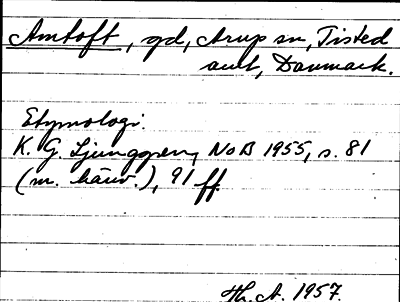 Amtoft, gd, Arup sn, Tisted
amt, Danmark.
Etymologi:
K. G. Ljunggren, NoB 1955, s. 81
(m. hänv.), 91 ff.
Th. A. 1957.